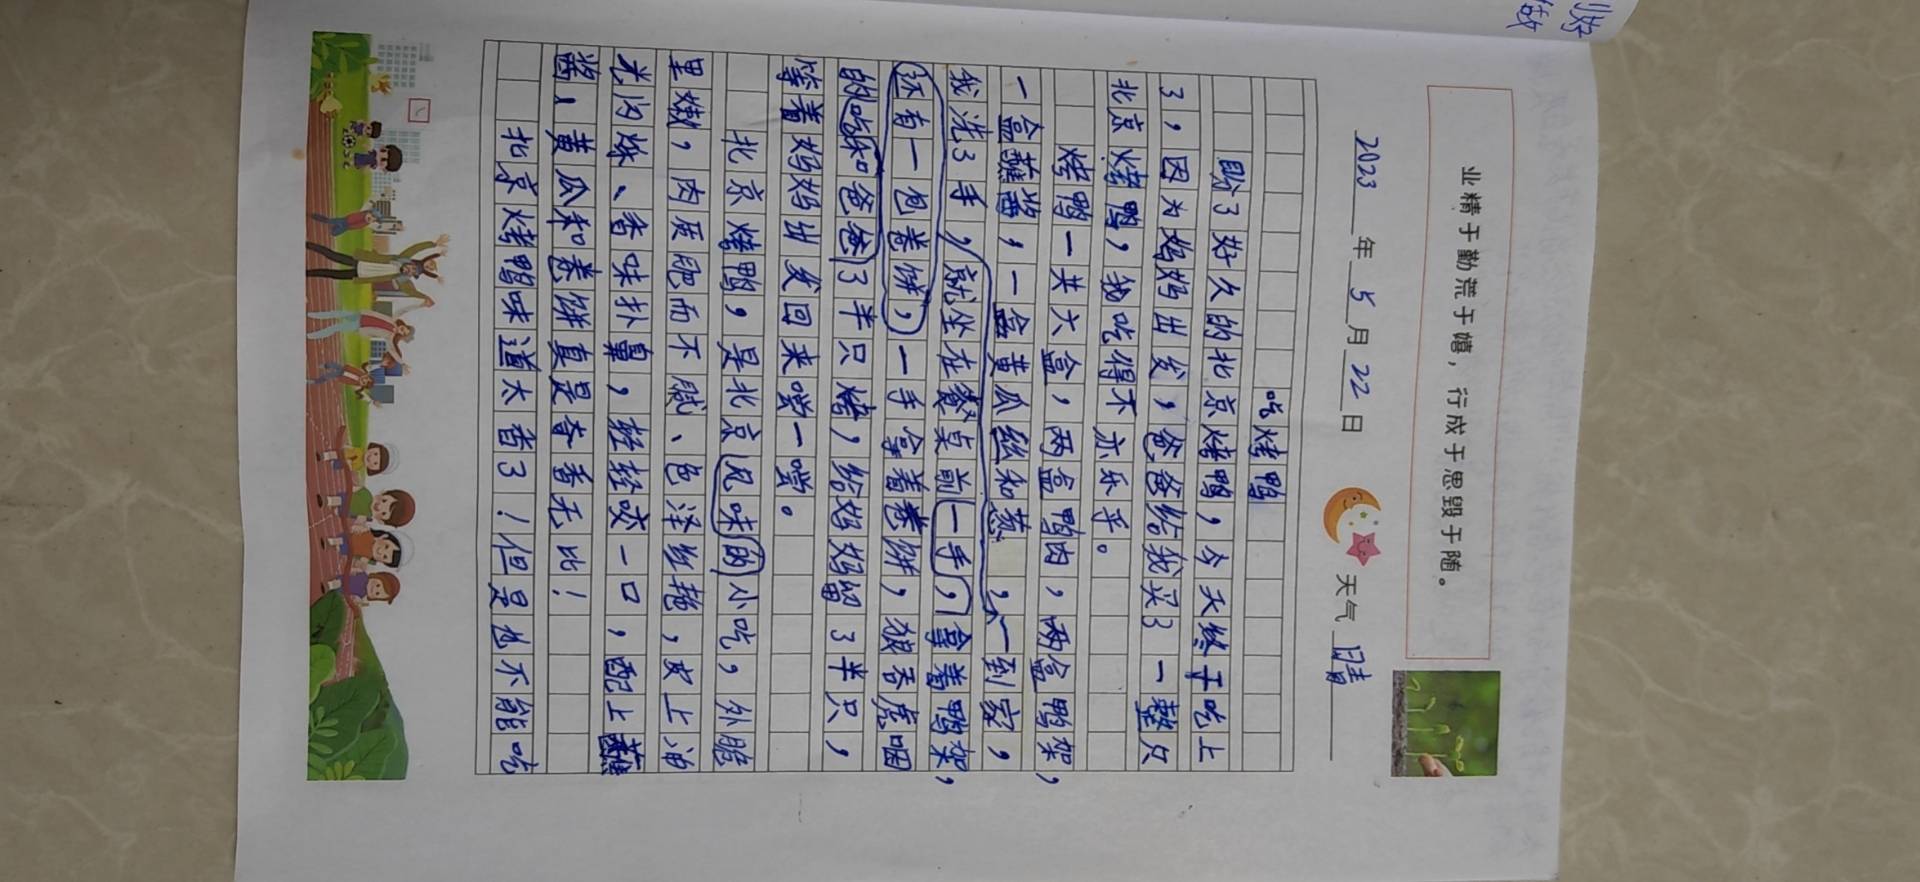 业精于勤荒于嬉，行成于思毁于随。
2023年5月22日 天气 晴
吃烤鸭
盼了好久的北京烤鸭，今天终于吃上
了，因为妈妈出发，爸爸给我买了一整只
北京烤鸭，我吃得不亦乐乎。
烤鸭一共六盒，两盒鸭肉，两盒鸭架，
一盒蘸酱，一盒黄瓜丝和葱，一到家，
我洗了手，就坐在餐桌前一手，拿着鸭架，
还有一包卷饼，一手拿着卷饼，狼吞虎咽
的吃和爸爸了半只烤，给妈妈留了半只，
等着妈妈出发回来尝一尝。
北京烤鸭，是北京风味的小吃，外脆
里嫩，肉质肥而不腻、色泽红艳，皮上油
光闪烁、香味扑鼻，轻轻咬一口，配上蘸
酱，黄瓜和卷饼真是奇香无比！
北京烤鸭味道太香了！但是也不能吃